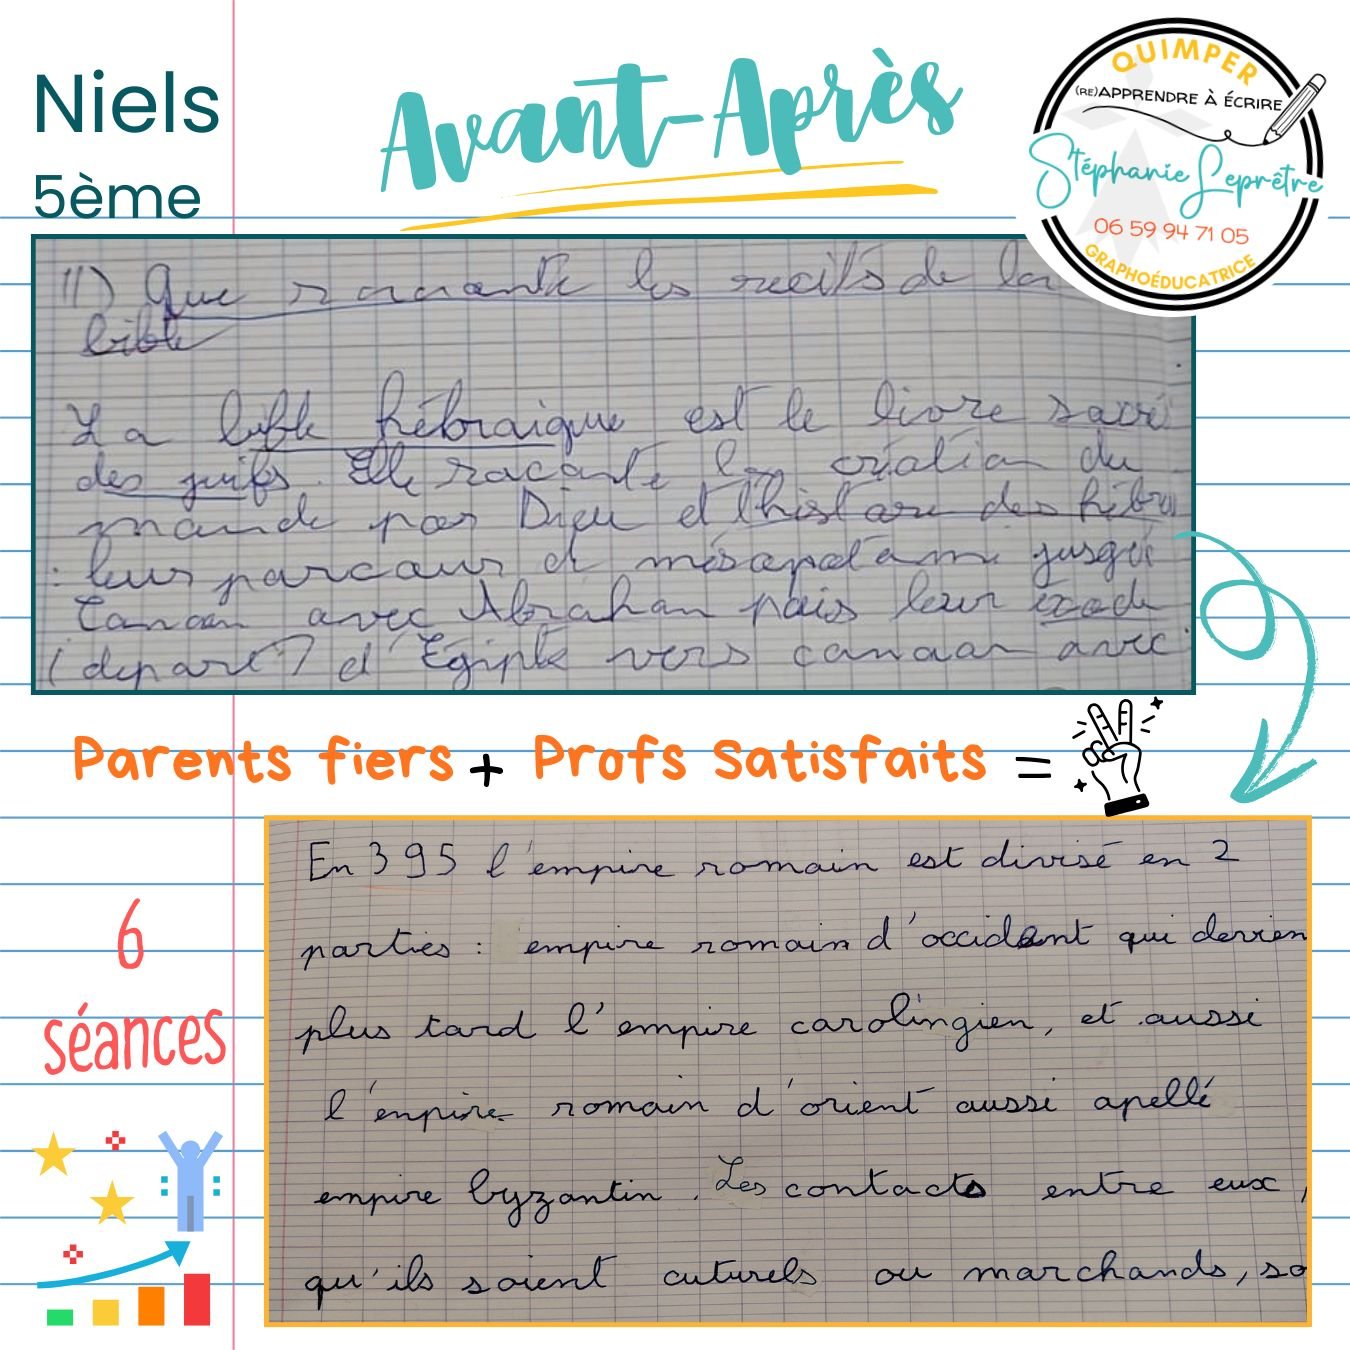 Niels
5ème
Avant-Après
QUIMPER
(RE)APPRENDRE À ÉCRIRE
Stéphanie Leprêtre
06 59 94 71 05
GRAPHOÉDUCATRICE
II) Que racconte les recits de la
bible
La bible hébraique est le livre sacré
des juifs. Elle raconte la création du
monde par Dieu et l'histoire des hébreu
: leur parcour de mésopotamie jusqu'à
Canaan avec Abraham puis leur exode
(depart) d'Egipte vers canaan avec
Parents fiers + Profs Satisfaits =
6
séances
En 395 l'empire romain est divisé en 2
parties : empire romain d'occident qui devien
plus tard l'empire carolingien, et aussi
l'enpire romain d'orient aussi apellé
empire byzantin. Les contacts entre eux,
qu'ils soient cuturels ou marchands, so